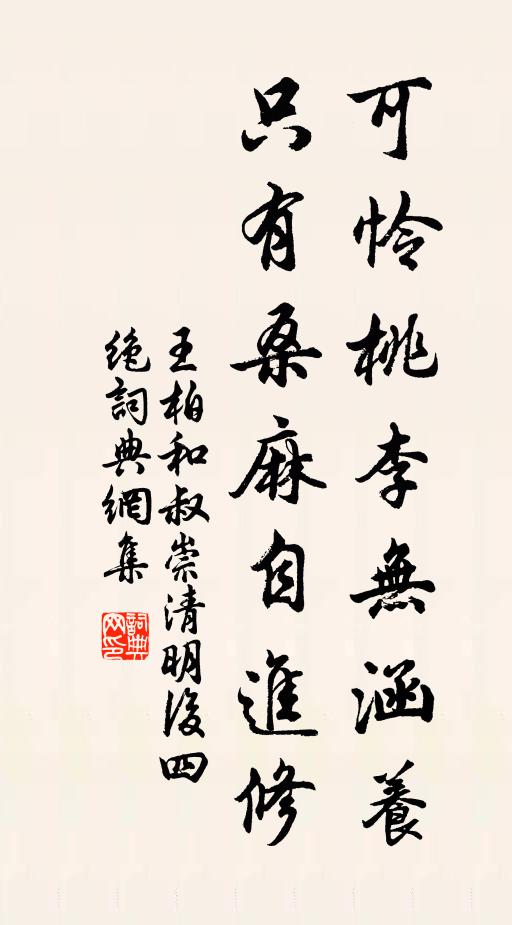 可憐桃李無涵養
只有桑麻自進修
王柏和叔崇清明後四
絶詞典網集
詞典網印